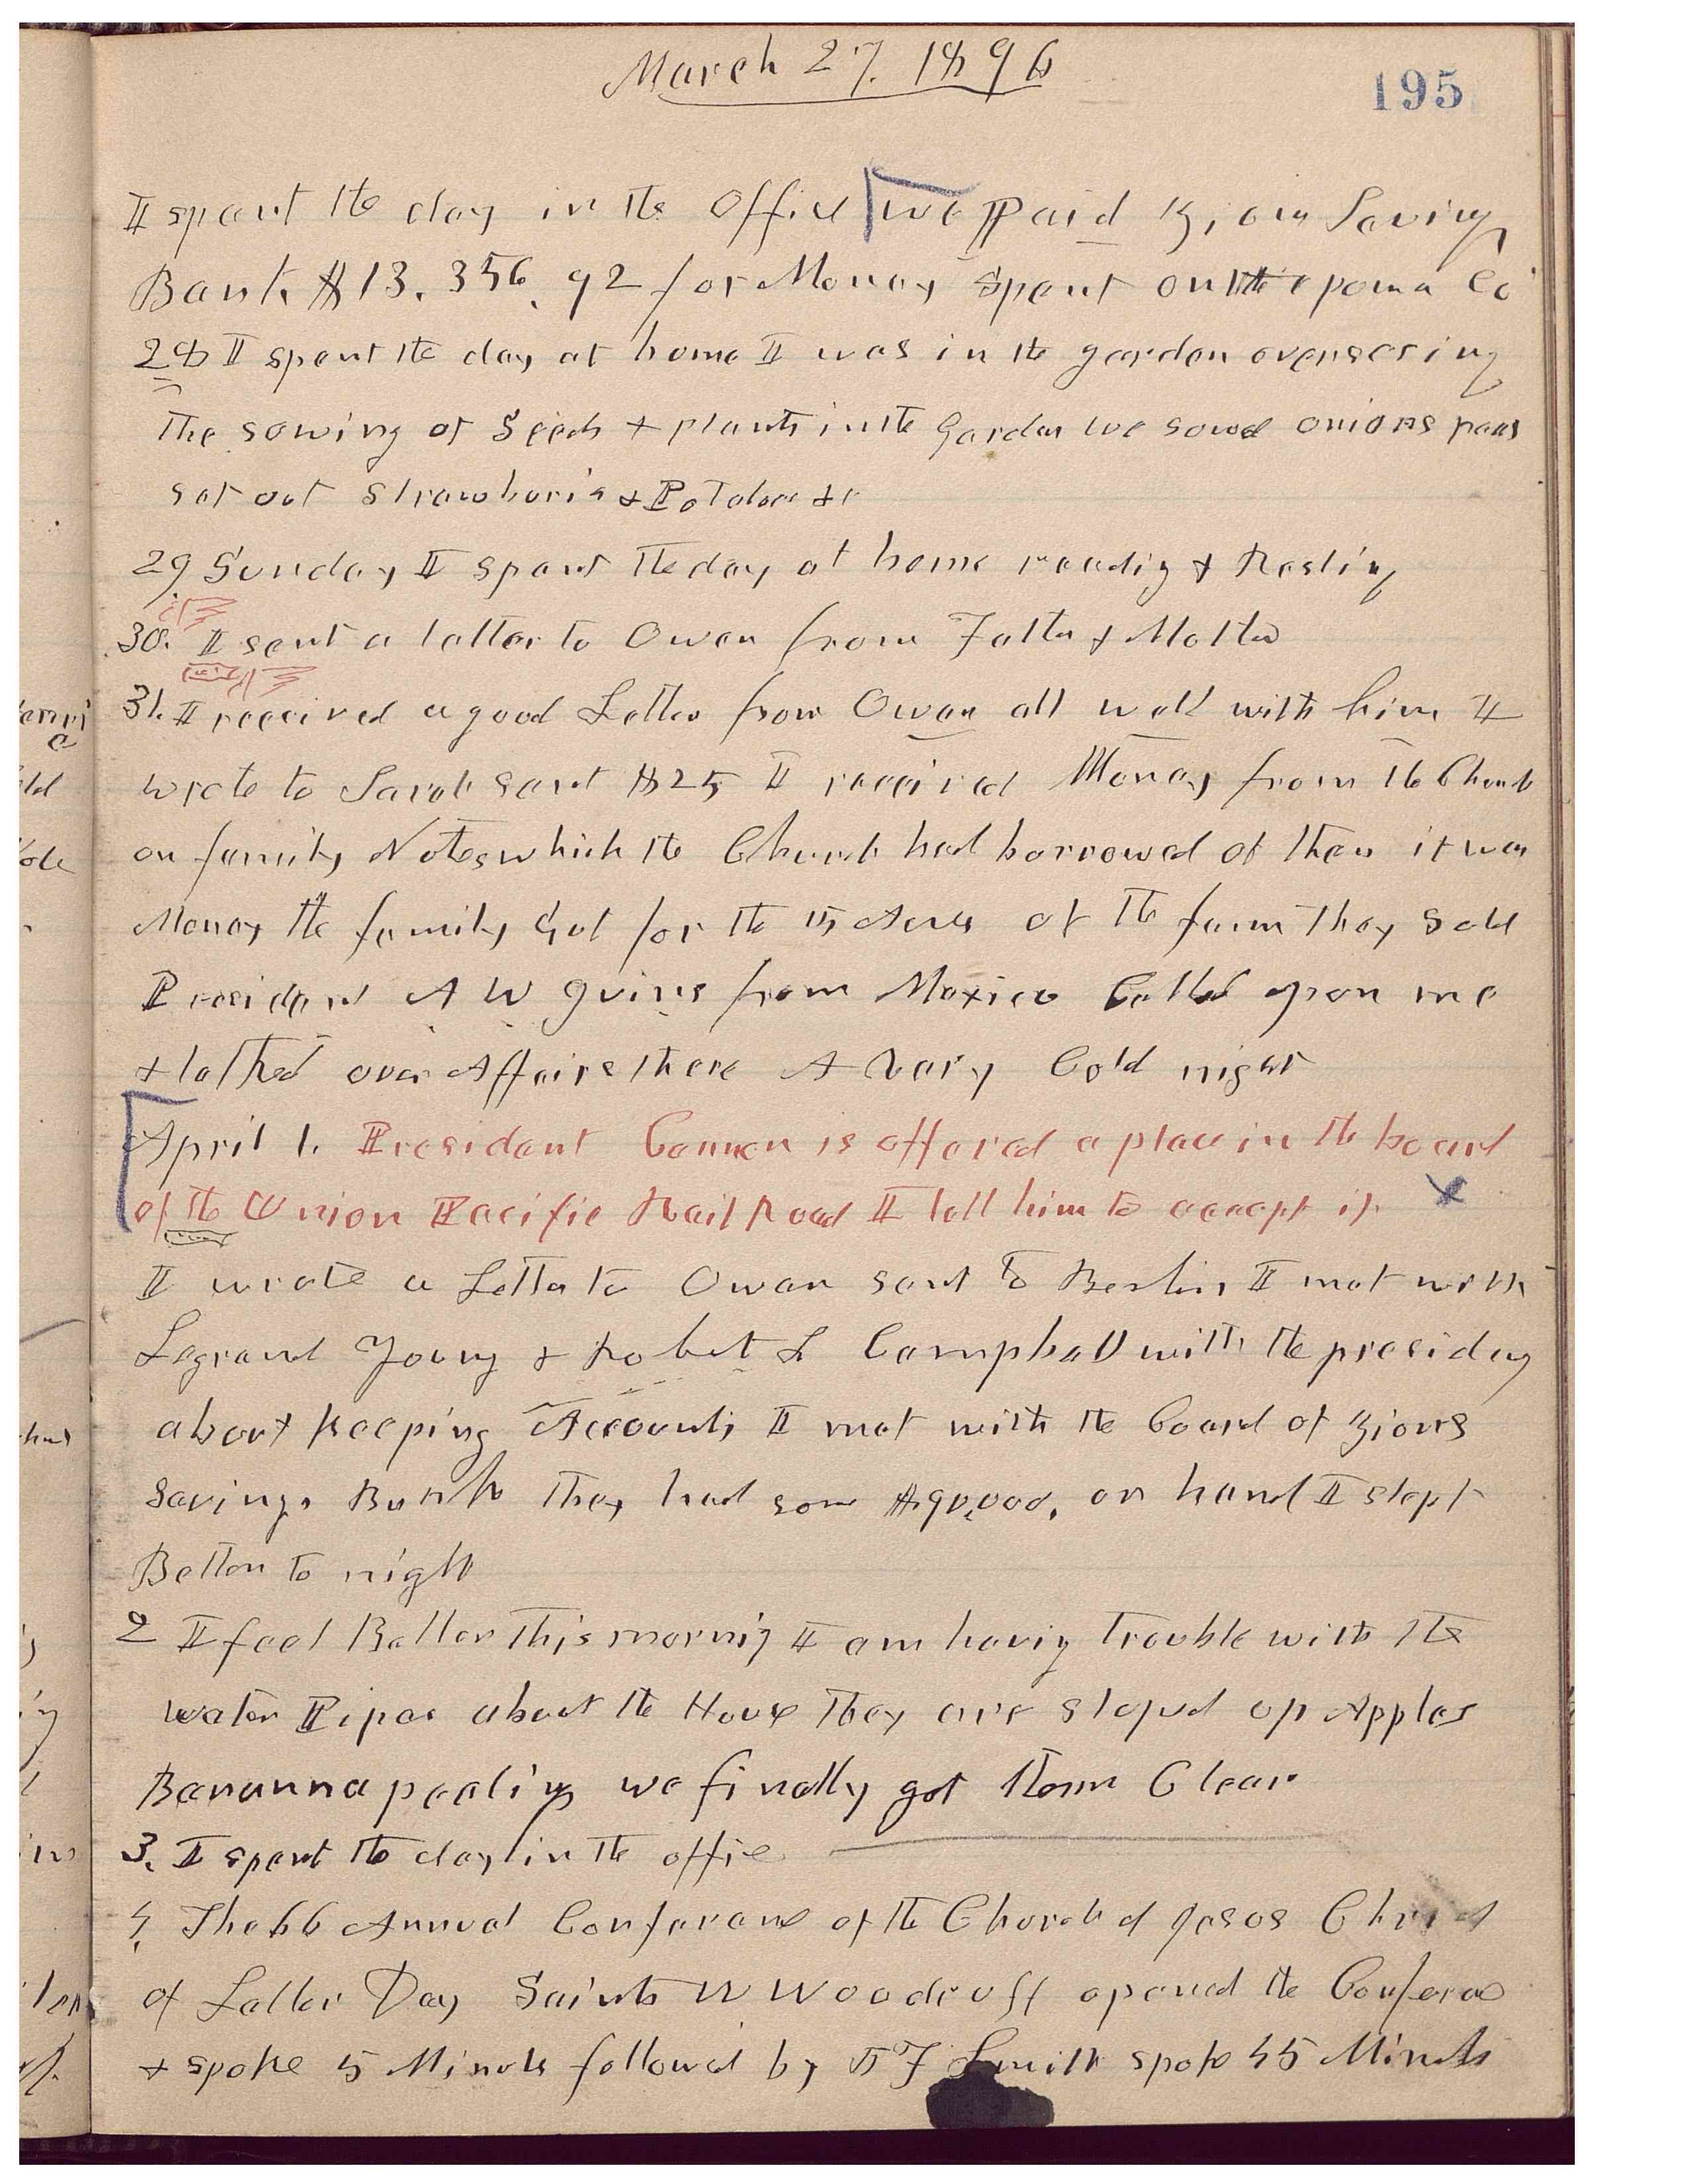 March 27. 1896
195
I spent the day in the Office we Paid Zion Saving
Bank $13.356.92 for Money Spent on the
28 I spent the day at home I was in the garden overseeing
The sowing of Seeds & plants in the Garden we sowed onions peas
set out Strawburis & Potatoes &c
29 Sunday I spent the day at home readig & Resting
30. I sent a letter to Owen from Father & Mother
31. I received a good Letter from Owen all well with him I
wrote to Sarah sent $25 I received Money from the Church
on family Notes which the Church had borrowed of them it was
Money the family Got for the 15 Acres of the farm They Sold
President A W Ivins from Mexico Called upon me
& talked over Affairs there A Very Cold night
April 1. President Cannon is offered a place in the board
of the Union Pacific Rail Road I tell him to accept it
I wrote a Letter to Owen sent to Berlin I met with
Legrand Young & Robert L Campbell with the presidency
about Keeping Accounts I met with the Board of Zions
Savings Bank They had some $90,000. on hand I slept
Better to night
2 I feel Better This mornig I am havig Trouble with the
water Pipes about the House They are stoped up Apples
Bananna peelings we finally got them Clear
3. I spent the day in the offie
4. The 66 Annual Conferance of the Church of Jesus Christ
of Latter Day Saints W Woodruff opened the Conferce
& spoke 5 Minuts followed by J F Smith spoke 45 Minuts